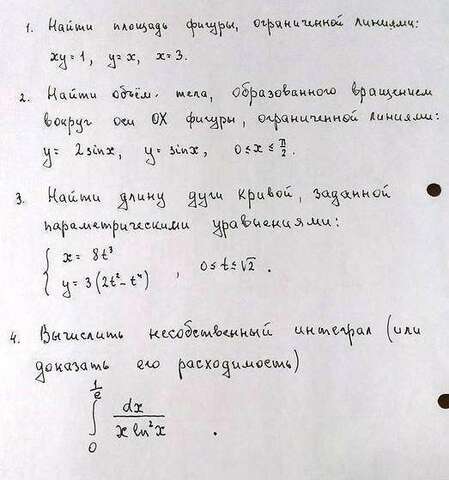 1. Найти площадь фигуры, ограниченной линиями:
xy=1, y=x, x=3.
2. Найти объём тела, образованного вращением
вокруг оси OX фигуры, ограниченной линиями:
y= 2sinx, y= sinx, 0≤x≤π/2.
3. Найти длину дуги кривой, заданной
параметрическими уравнениями:
{ x = 8t³
y = 3(2t²-t⁴) , 0≤t≤√2 .
4. Вычислить несобственный интеграл (или
доказать его расходимость)
∫₀^(1/e) dx/(x ln²x) .